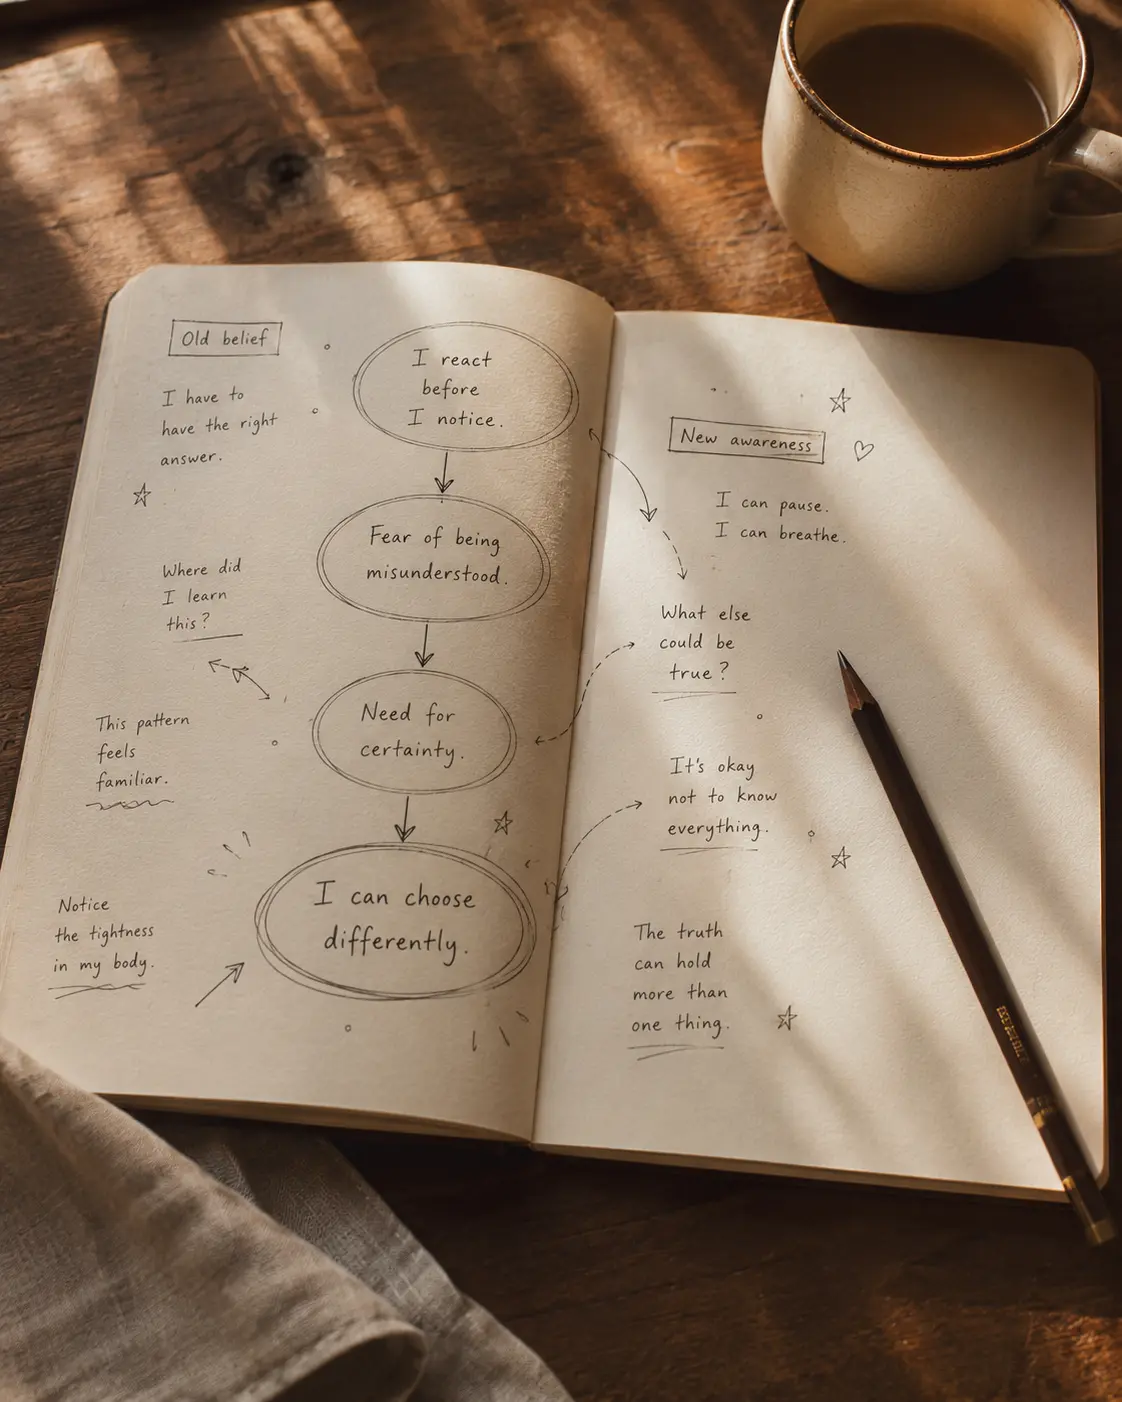 Old belief
I have to
have the right
answer.
Where did
I learn
this?
This pattern
feels
familiar.
Notice
the tightness
in my body.
I react
before
I notice.
Fear of being
misunderstood.
Need for
certainty.
I can choose
differently.
New awareness
I can pause.
I can breathe.
What else
could be
true?
It's okay
not to know
everything.
The truth
can hold
more than
one thing.